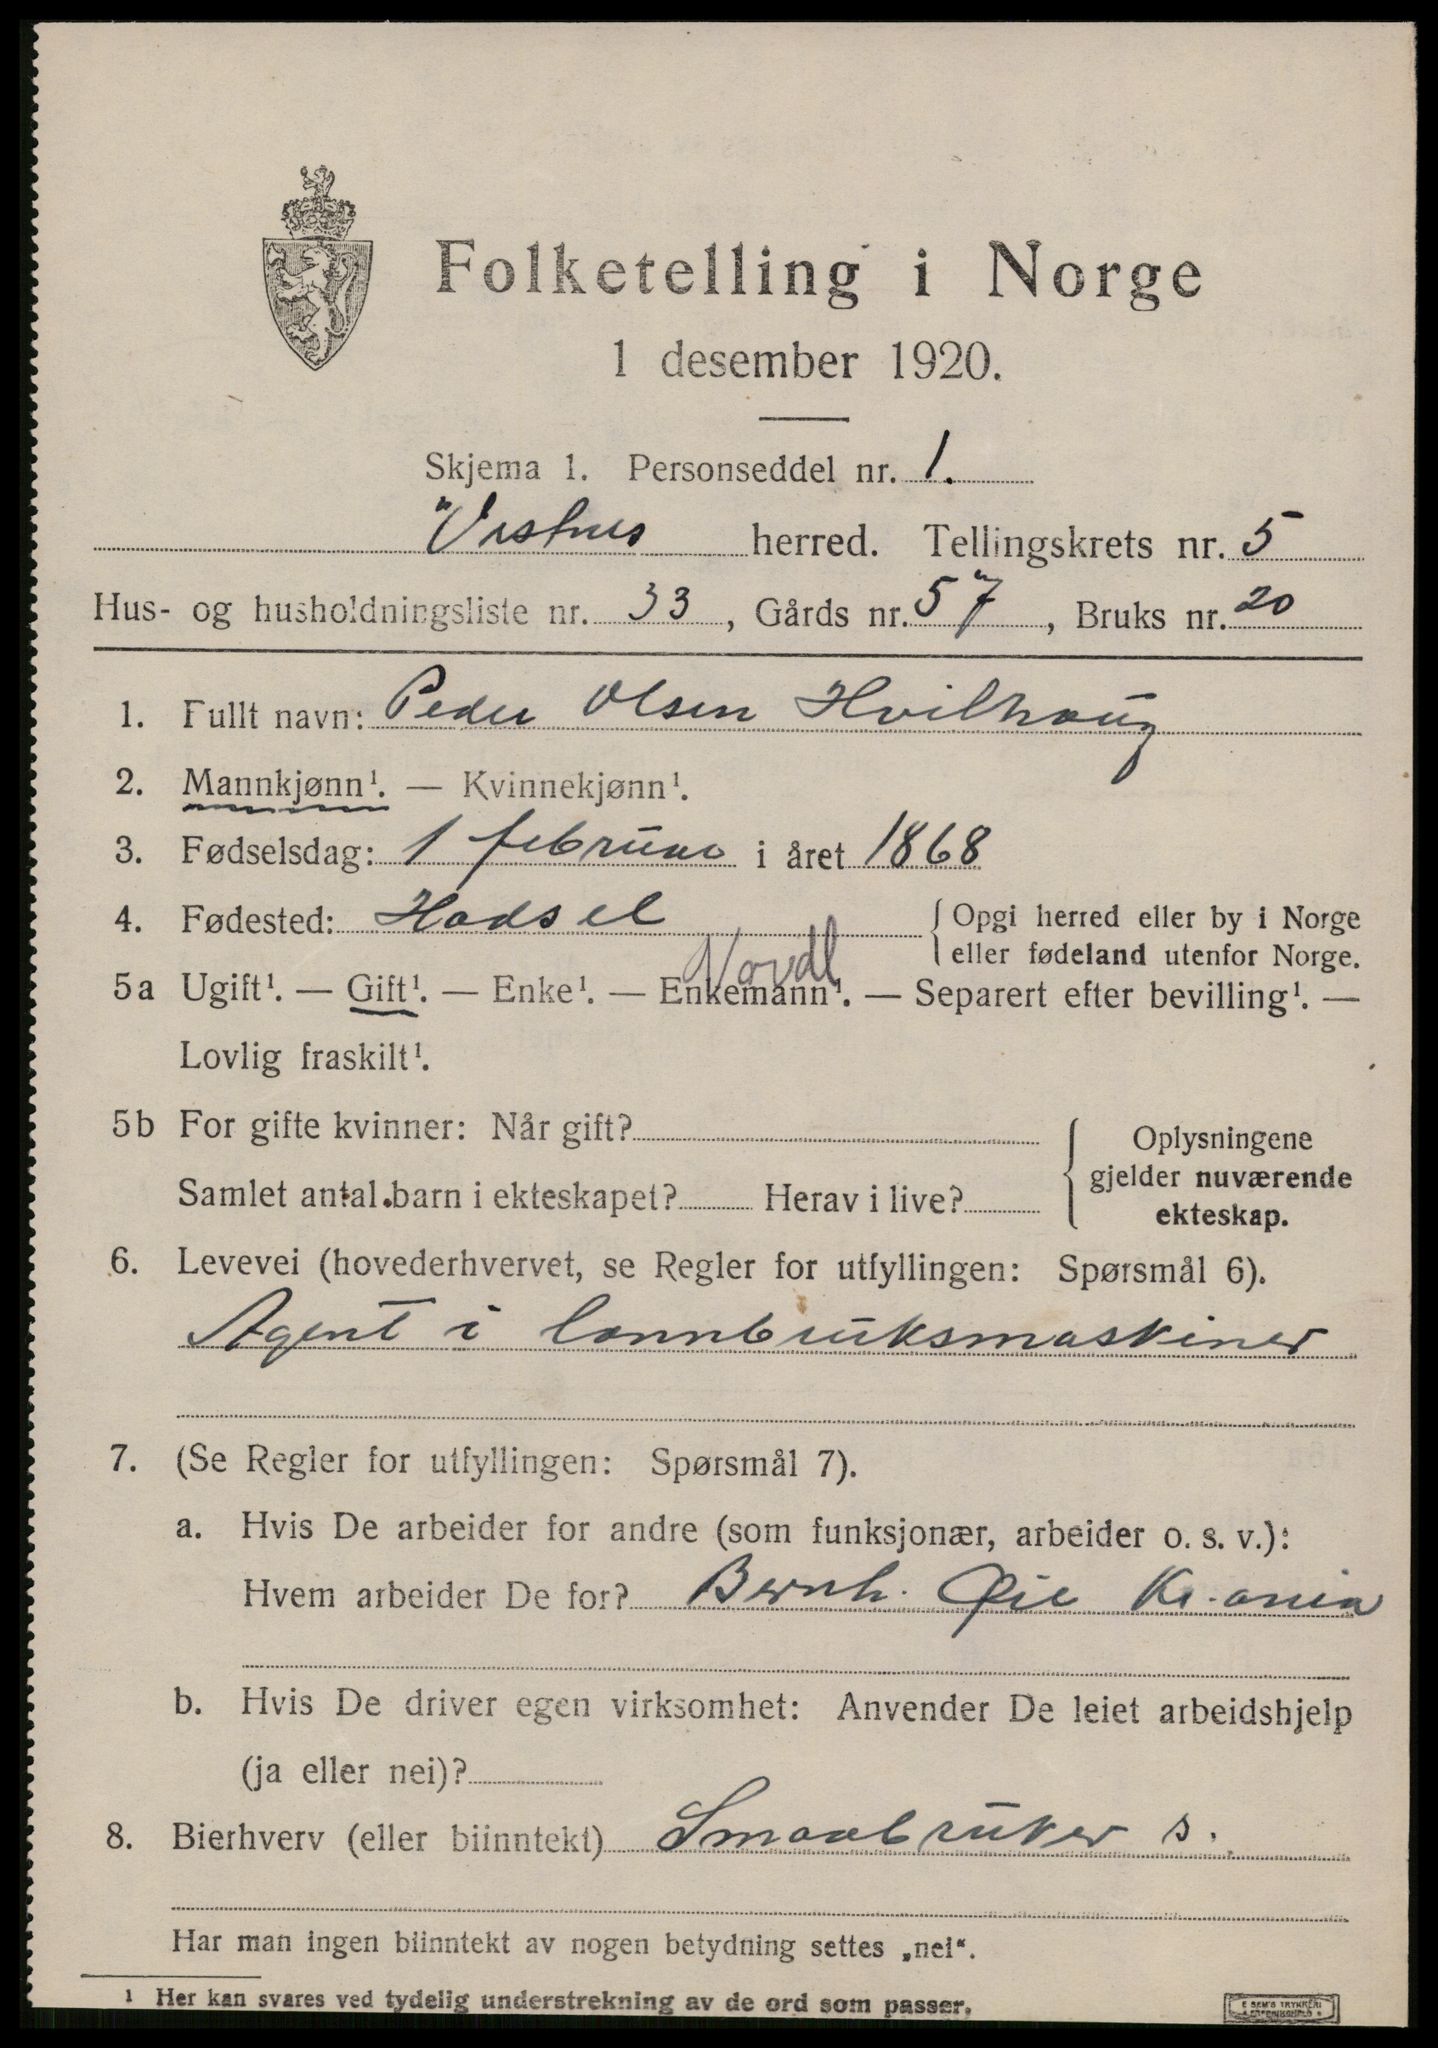 Folketelling i Norge
1 desember 1920.
Skjema 1. Personseddel nr. 1.
Vestnes herred. Tellingskrets nr. 5
Hus- og husholdningsliste nr. 33, Gårds nr. 57, Bruks nr. 20
1. Fullt navn: Peder Olsen Hvilhaug
2. Mannkjønn¹. — Kvinnekjønn¹.
3. Fødselsdag: 1 februar i året 1868
4. Fødested: Hadsel { Opgi herred eller by i Norge
eller fødeland utenfor Norge.
Nordl
5a Ugift¹. — Gift¹. — Enke¹. — Enkemann¹. — Separert efter bevilling¹. —
Lovlig fraskilt¹.
5b For gifte kvinner: Når gift?
Samlet antal barn i ekteskapet? Herav i live?
{ Oplysningene
gjelder nuværende
ekteskap.
6. Levevei (hovederhvervet, se Regler for utfyllingen: Spørsmål 6).
Agent i lannbruksmaskiner
7. (Se Regler for utfyllingen: Spørsmål 7).
a. Hvis De arbeider for andre (som funksjonær, arbeider o. s. v.):
Hvem arbeider De for? Bernh. Øie Kr.ania
b. Hvis De driver egen virksomhet: Anvender De leiet arbeidshjelp
(ja eller nei)?
8. Bierhverv (eller biinntekt) Smaabruker s.
Har man ingen biinntekt av nogen betydning settes „nei“.
¹ Her kan svares ved tydelig understrekning av de ord som passer.
E SEM'S TRYKKERI
FREDRIKSHALD